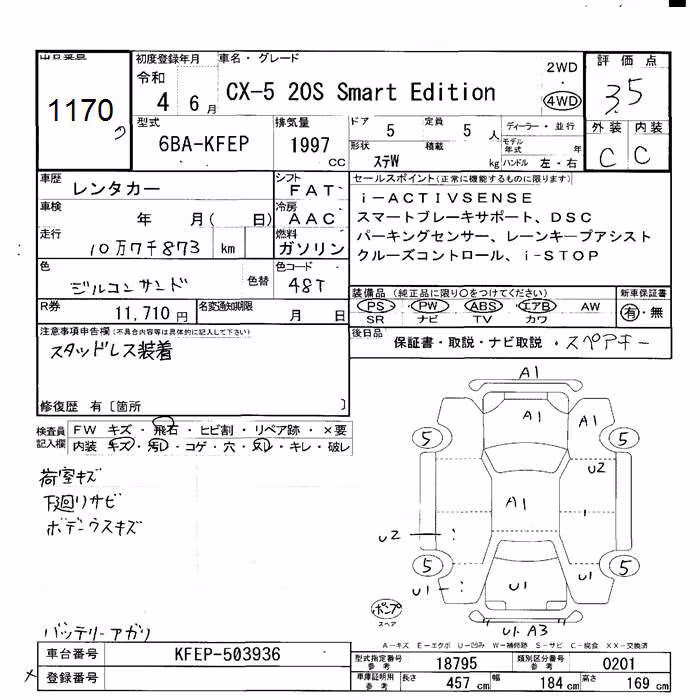 出品番号
1170
初度登録年月
令和
4 6月
車名・グレード
CX-5 20S Smart Edition
2WD
・
4WD
評価点
3.5
型式
6BA-KFEP
排気量
1997
CC
ドア
5
定員
5 人
形状
ステW
積載
kg
ディーラー・並行
モデル年式
年
ハンドル 左・右
外装 内装
C C
車歴
レンタカー
シフト
FAT
車検
年 月( 日)
冷房
AAC
走行
10万7千873 km
燃料
ガソリン
色
ジルコンサンド
色替
色コード
48T
R券
11,710円
名変通知期限
月 日
セールスポイント(正常に機能するものに限ります)
i-ACTIVSENSE
スマートブレーキサポート、DSC
パーキングセンサー、レーンキープアシスト
クルーズコントロール、i-STOP
装備品(純正品に限り○をつけてください)
PS PW ABS エアB AW
SR ナビ TV カワ
新車保証書
有・無
後日品
保証書・取説・ナビ取説・スペアキー
注意事項申告欄(不具合内容等は具体的に記入して下さい)
スタッドレス装着
修復歴 有〔箇所 〕
検査員記入欄
FW キズ・飛石・ヒビ割・リペア跡・×要
内装 キズ・汚レ・コゲ・穴・スレ・キレ・破レ
荷室キズ
下廻りサビ
ボデーウスキズ
バッテリーアガリ
A1
A1 A1
5 5
U2
A1
U2
5 5
U1 U1 U1
ポンプ
スペア
U1 A3
A-キズ E-エクボ U-凹み W-補修跡 S-サビ C-腐食 XX-交換済
車台番号
KFEP-503936
× 登録番号
型式指定番号
参考
18795
類別区分番号
参考
0201
車庫証明用
参考
長さ 457 cm 幅 184 cm 高さ 169 cm